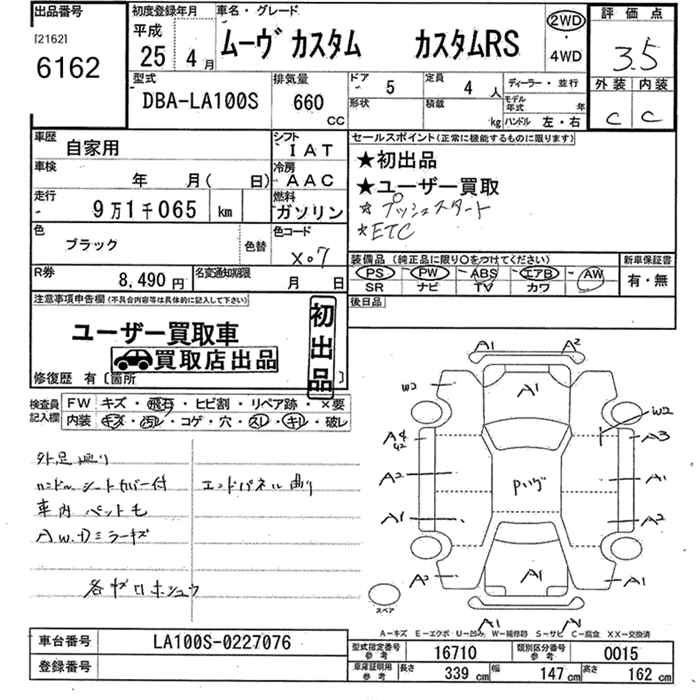 出品番号
[2162]
6162
初度登録年月
平成
25年
4月
車名・グレード
ムーヴ カスタム カスタムRS
2WD
・
4WD
評価点
3.5
外装 内装
C C
型式
DBA-LA100S
排気量
660
CC
ドア 5
形状
定員 4 人
積載 kg
ディーラー・並行
モデル年式 年
ハンドル 左・右
車歴
自家用
シフト
IAT
車検
年 月( 日)
冷房
AAC
走行
9万1千065 km
燃料
ガソリン
色
ブラック
色替
色コード
X07
R券
8,490円
名変通知期限
月 日
セールスポイント(正常に機能するものに限ります)
★初出品
★ユーザー買取
☆プッシュスタート
☆ETC
装備品 (純正品に限り○をつけてください)
PS・PW・ABS・エアB・AW
SR ナビ TV カワ
新車保証書
有・無
後日品
注意事項申告欄(不具合内容等は具体的に記入して下さい)
ユーザー買取車
買取店出品
初出品
修復歴 有〔箇所 〕
検査員記入欄
FW キズ・飛石・ヒビ割・リペア跡・×要
内装 キズ・汚レ・コゲ・穴・スレ・キレ・破レ
ハンドル シートカバー付
エンドパネル曲り
車内 ペットも
AW.Dミラーキズ
各キロホシュウ
A1 A2
W2 A1
W2
A4 A3
42
A2 Pハゲ A1
A1 A2
A2 A1 A1
スペア
A1
A-キズ E-エクボ U-凹み W-補修跡 S-サビ C-腐食 XX-交換済
車台番号
LA100S-0227076
登録番号
型式指定番号 参考
16710
類別区分番号 参考
0015
車庫証明用 参考
長さ 339 cm
幅 147 cm
高さ 162 cm